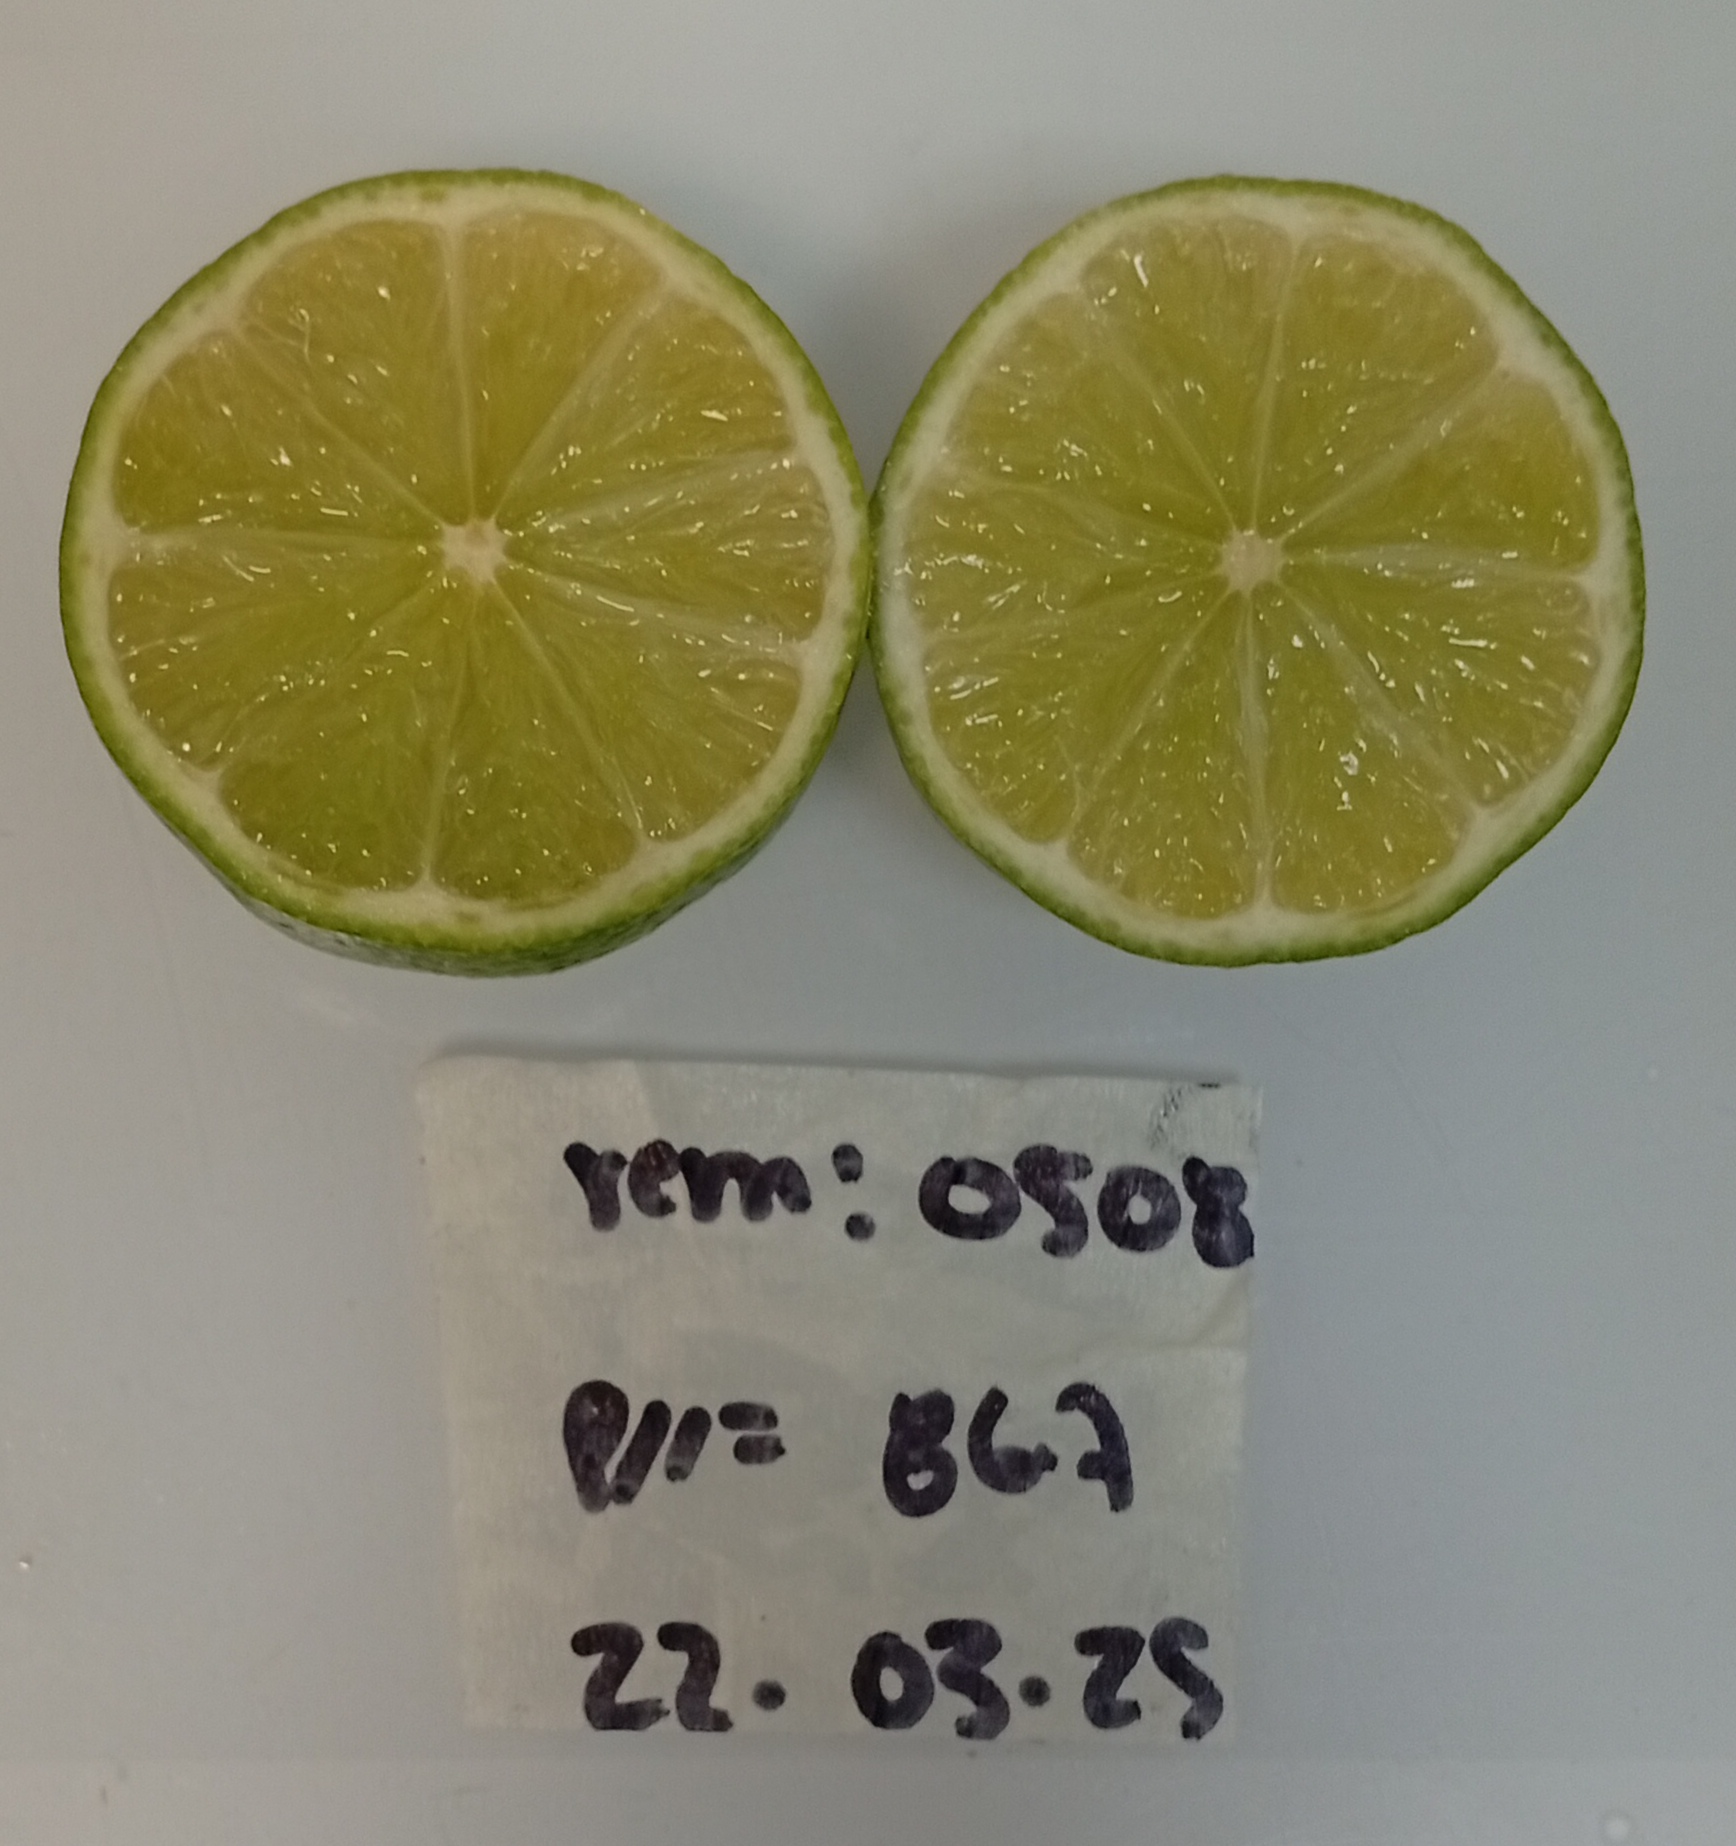 rem: 0508
P//= 867
22. 03. 25